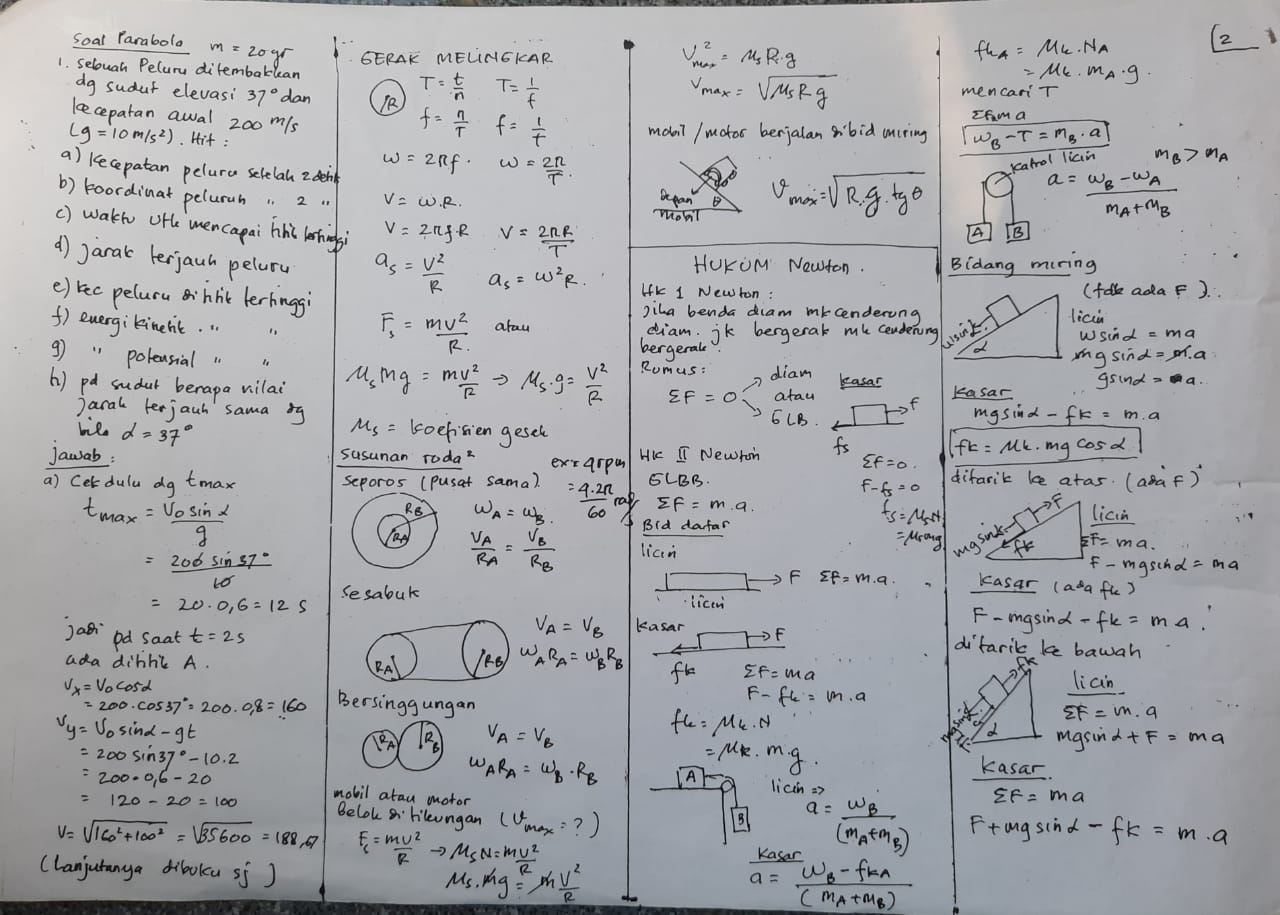 Soal Parabola m = 20 gr
1. Sebuah Peluru ditembakkan
dg sudut elevasi 37° dan
kecepatan awal 200 m/s
(g = 10 m/s²). Hit :
a) kecepatan peluru setelah 2 detik
b) koordinat peluruh " 2 "
c) waktu utk mencapai titik tertinggi
d) jarak terjauh peluru
e) kec peluru di titik tertinggi
f) energi kinetik . " "
g) " potensial " "
h) pd sudut berapa nilai
jarak terjauh sama dg
bila α = 37°
jawab :
a) Cek dulu dg tmax
tmax = Vo sin α / g
= 200 sin 37° / 10
= 20 . 0,6 = 12 s
jadi pd saat t = 2s
ada dititik A .
Vx = Vo cos α
= 200 . cos 37° = 200 . 0,8 = 160
Vy = Vo sin α - gt
= 200 sin 37° - 10.2
= 200 . 0,6 - 20
= 120 - 20 = 100
V = √160² + 100² = √35600 = 188,67
(Lanjutanya dibuku sj)
GERAK MELINGKAR
R
T = t/n T = 1/f
f = n/T f = 1/T
ω = 2πf . ω = 2π/T
V = ω.R.
V = 2πfR V = 2πR/T
as = V²/R as = ω²R.
Fs = mv²/R. atau
μs mg = mv²/R → μs . g = V²/R
μs = koefisien gesek
Susunan roda²
Seporos (pusat sama)
ex = 4 rpm
= 4.2π/60 rad/s
RB
RA
ωA = ωB
VA/RA = VB/RB
Sesabuk
RA
RB
VA = VB
ωA RA = ωB RB
Bersinggungan
RA
RB
VA = VB
ωA RA = ωB . RB
mobil atau motor
Belok di tikungan (Vmax = ?)
Fs = mv²/R → μs N = mv²/R
μs . mg = m V²/R
V²max = μs R.g
Vmax = √μs R g
mobil / motor berjalan di bid miring
Depan
mobil
θ
Vmax = √R.g. tg θ
HUKUM Newton .
Hk 1 Newton :
jika benda diam mk cenderung
diam. jk bergerak mk cenderung
bergerak .
Rumus :
ΣF = 0
diam
atau
GLB.
kasar
F
fs
ΣF = 0.
F - fs = 0
fs = μs N
= μs mg
Hk II Newton
GLBB.
ΣF = m . a .
Bid datar
licin
F ΣF = m . a .
licin
kasar
F
fk
ΣF = ma
F - fk = m . a
fk = μk . N
= μk . m . g .
A
B
licin =>
a = ωB / (mA + mB)
kasar
a = ωB - fkA / (mA + mB)
2
fkA = μk . NA
= μk . mA . g .
mencari T
ΣF = m a
ωB - T = mB . a
katrol licin
mB > mA
A
B
a = ωB - ωA / mA + mB
Bidang miring
(tdk ada F) .
w sin α
α
licin
w sin α = ma
mg sin α = m.a
g sin α = a .
kasar
mg sin α - fk = m . a
fk = μk . mg cos α
ditarik ke atas . (ada F)
F
mg sin α
fk
licin
ΣF = ma .
F - mg sin α = ma
kasar (ada fk)
F - mg sin α - fk = m a .
ditarik ke bawah
fk
mg sin α
F
α
licin
ΣF = m . a
mg sin α + F = ma
kasar .
ΣF = ma
F + mg sin α - fk = m . a